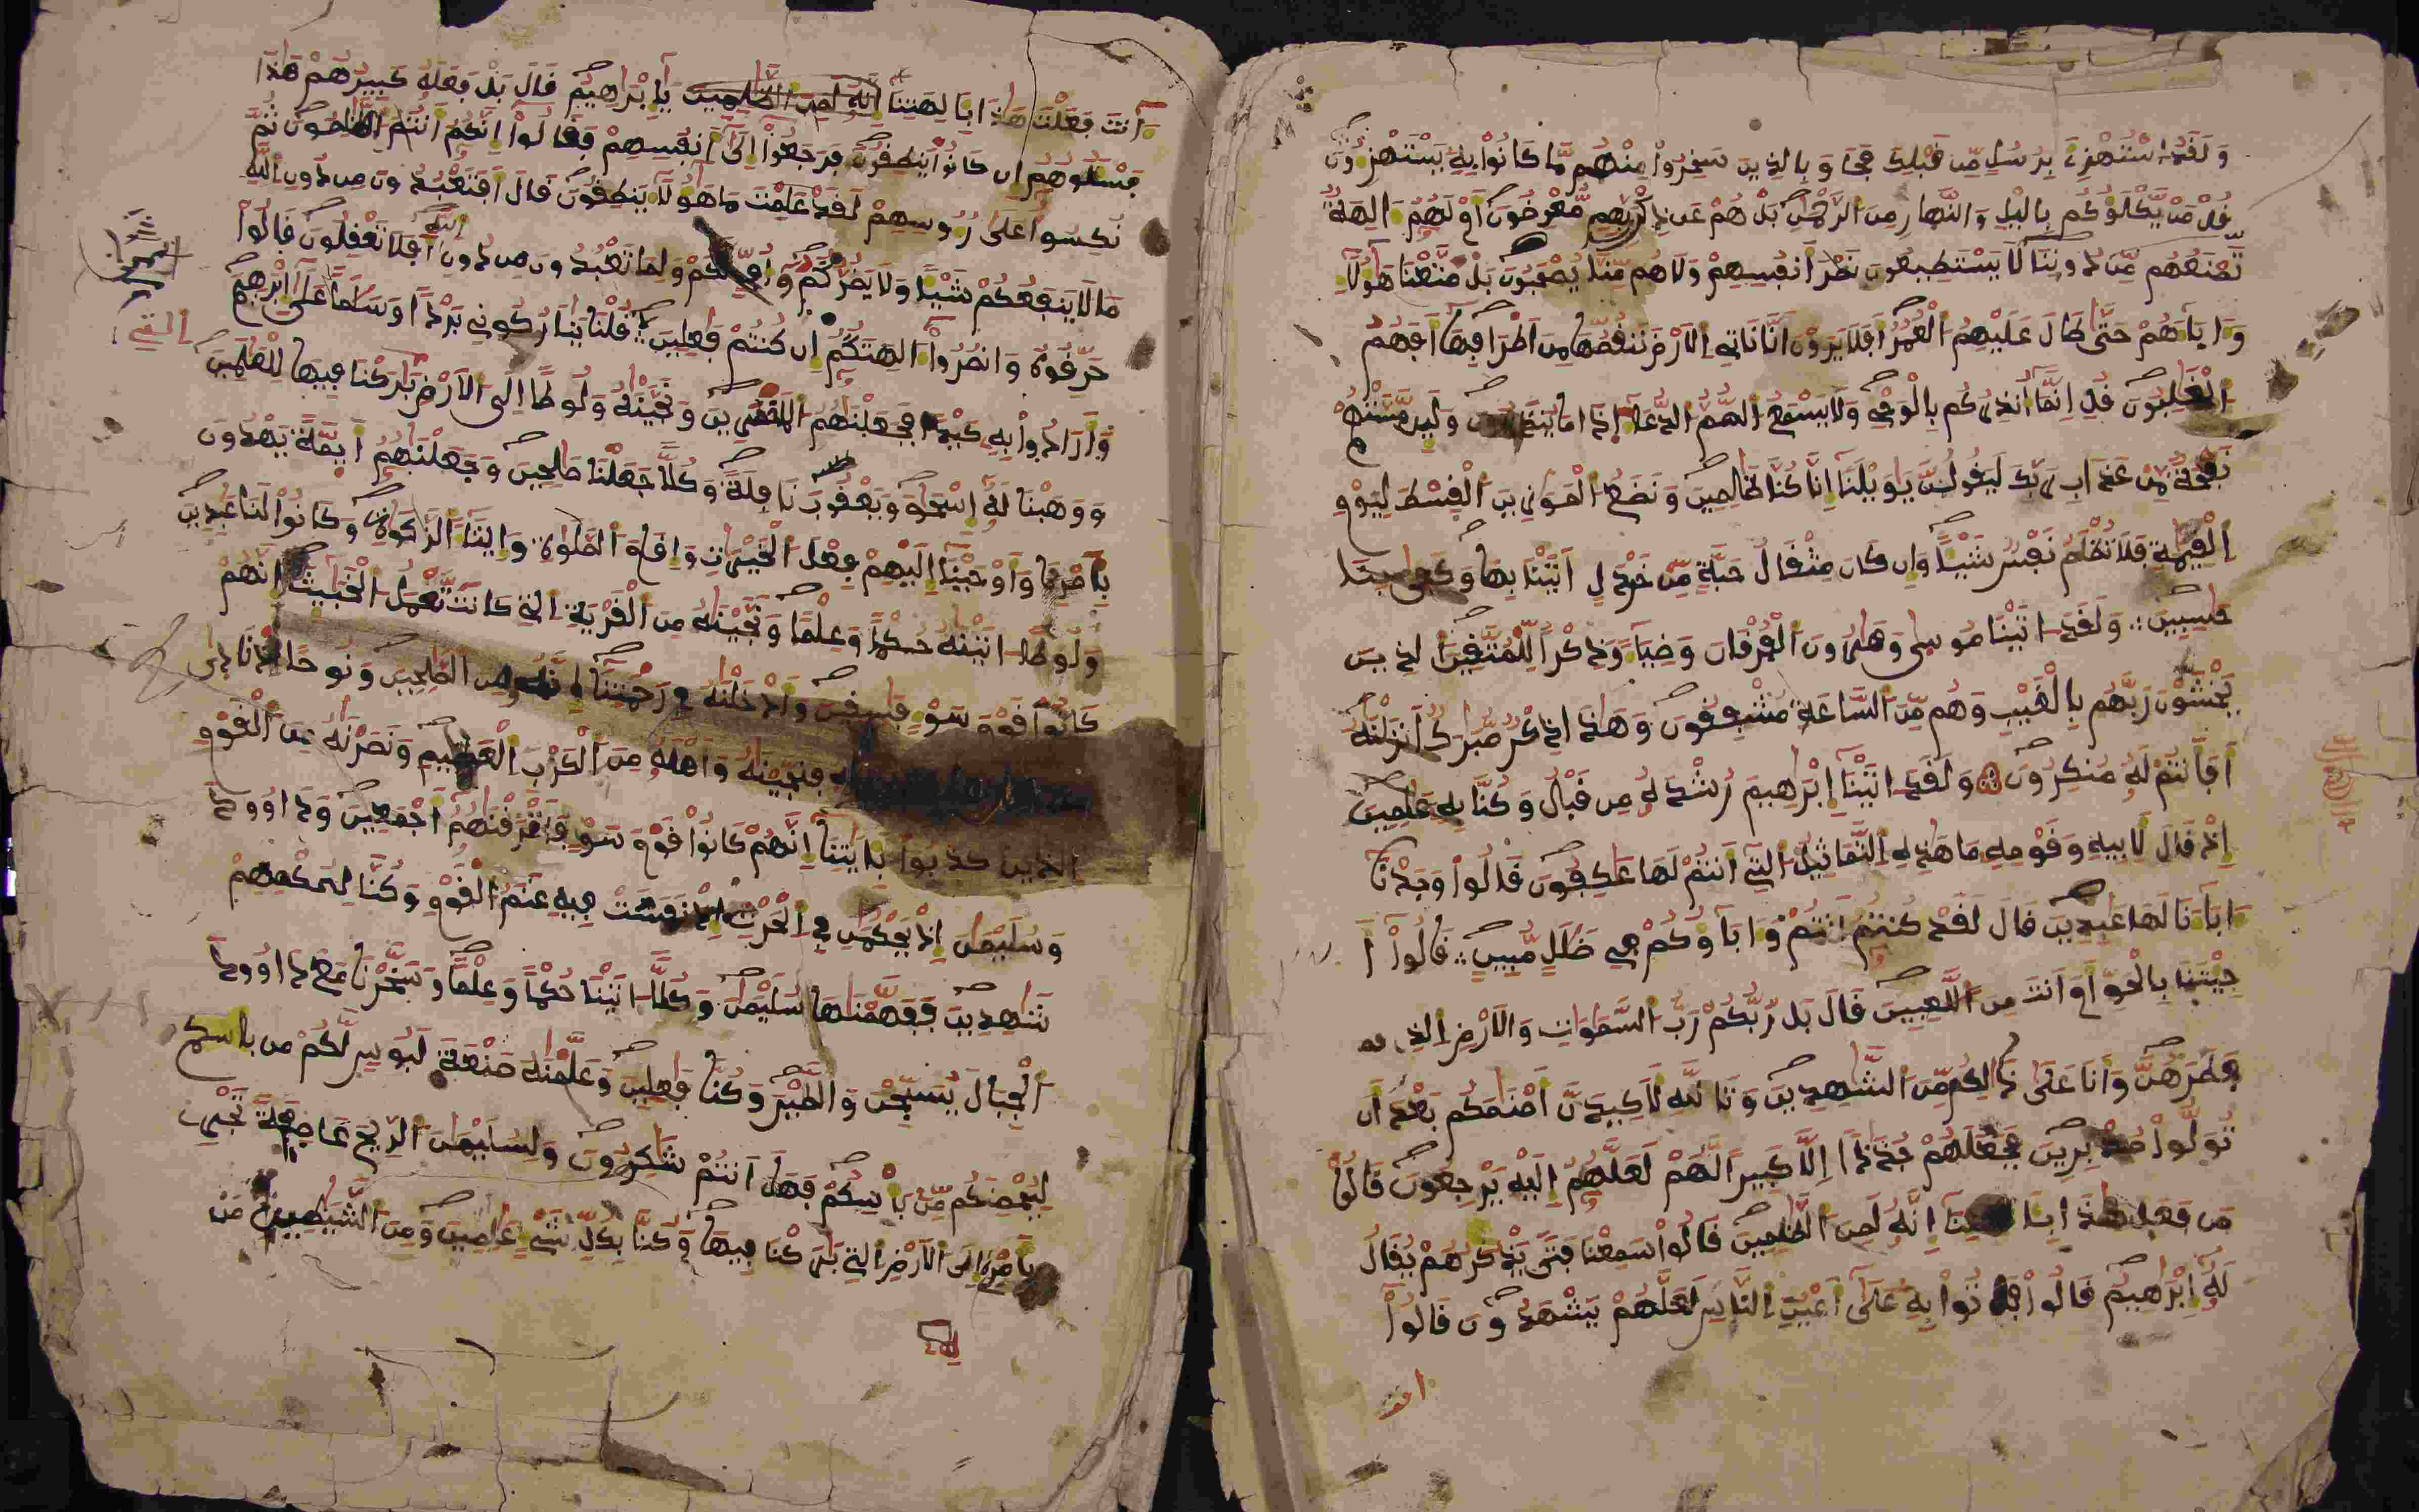 وَلَقَدِ اسْتُهْزِئَ بِرُسُلٍ مِّن قَبْلِكَ فَحَاقَ بِالذِينَ سَخِرُوا مِنْهُم مَّا كَانُوا بِهِ يَسْتَهْزِءُونَ
قُلْ مَنْ يَّكْلَؤُكُم بِاليْلِ وَالنَّهارِ مِنَ الرَّحْمَٰنِ بَلْ هُمْ عَن ذِكْرِ رَبِّهِم مُّعْرِضُونَ أَمْ لَهُمُ ءَالِهَةٌ
تَمْنَعُهُم مِّن دُونِنَا لَا يَسْتَطِيعُونَ نَصْرَ أَنفُسِهِمْ وَلَا هُم مِّنَّا يُصْحَبُونَ بَلْ مَتَّعْنَا هَٰؤُلَاءِ
وَءَابَاءَهُمْ حَتَّى طَالَ عَلَيْهِمُ الْعُمُرُ أَفَلَا يَرَوْنَ أَنَّا نَاتِي الْأَرْضَ نَنقُصُهَا مِنَ اطْرَافِهَا أَفَهُمُ
الْغَٰلِبُونَ قُلِ انَّمَا أُنذِرُكُم بِالْوَحْيِ وَلَا يَسْمَعُ الصُّمُّ الدُّعَاءَ اذَا مَا يُنذَرُونَ وَلَئِن مَّسَّتْهُمْ
نَفْحَةٌ مِّنْ عَذَابِ رَبِّكَ لَيَقُولُنَّ يَٰوَيْلَنَا إِنَّا كُنَّا ظَٰلِمِينَ وَنَضَعُ الْمَوَٰزِينَ الْقِسْطَ لِيَوْمِ
الْقِيَٰمَةِ فَلَا تُظْلَمُ نَفْسٌ شَيْئًا وَإِن كَانَ مِثْقَالُ حَبَّةٍ مِّنْ خَرْدَلٍ اَتَيْنَا بِهَا وَكَفَىٰ بِنَا
حَٰسِبِينَ وَلَقَدَ اتَيْنَا مُوسَىٰ وَهَٰرُونَ الْفُرْقَانَ وَضِيَاءً وَذِكْرًا لِّلْمُتَّقِينَ الذِينَ
يَخْشَوْنَ رَبَّهُم بِالْغَيْبِ وَهُم مِّنَ السَّاعَةِ مُشْفِقُونَ وَهَٰذَا ذِكْرٌ مُّبَٰرَكٌ اَنزَلْنَٰهُ
أَفَأَنتُمْ لَهُ مُنكِرُونَ وَلَقَدَ اتَيْنَا إِبْرَٰهِيمَ رُشْدَهُ مِن قَبْلُ وَكُنَّا بِهِ عَٰلِمِينَ
إِذْ قَالَ لِأَبِيهِ وَقَوْمِهِ مَا هَٰذِهِ التَّمَاثِيلُ التِي أَنتُمْ لَهَا عَٰكِفُونَ قَالُوا وَجَدْنَا
ءَابَاءَنَا لَهَا عَٰبِدِينَ قَالَ لَقَدْ كُنتُمُ أَنتُمْ وَءَابَاؤُكُمْ فِي ضَلَٰلٍ مُّبِينٍ قَالُوا أَ
جِئْتَنَا بِالْحَقِّ أَمَ اَنتَ مِنَ اللَّٰعِبِينَ قَالَ بَل رَّبُّكُمْ رَبُّ السَّمَٰوَاتِ وَالْأَرْضِ الذِي
فَطَرَهُنَّ وَأَنَا عَلَىٰ ذَٰلِكُم مِّنَ الشَّٰهِدِينَ وَتَاللَّهِ لَأَكِيدَنَّ أَصْنَٰمَكُم بَعْدَ أَن
تُوَلُّوا مُدْبِرِينَ فَجَعَلَهُمْ جُذَٰذًا إِلَّا كَبِيرًا لَّهُمْ لَعَلَّهُمُ إِلَيْهِ يَرْجِعُونَ قَالُوا
مَن فَعَلَ هَٰذَا بِـَٔالِهَتِنَا إِنَّهُ لَمِنَ الظَّٰلِمِينَ قَالُوا سَمِعْنَا فَتًى يَذْكُرُهُمْ يُقَالُ
لَهُ إِبْرَٰهِيمُ قَالُوا فَاتُوا بِهِ عَلَىٰ أَعْيُنِ النَّاسِ لَعَلَّهُمْ يَشْهَدُونَ قَالُوا
ءَآنتَ فَعَلْتَ هَٰذَا بِـَٔالِهَتِنَا إِنَّهُ لَمِنَ الظَّٰلِمِينَ يَٰإِبْرَٰهِيمُ قَالَ بَلْ فَعَلَهُ كَبِيرُهُمْ هَٰذَا
فَسْـَٔلُوهُمُ إِن كَانُوا يَنطِقُونَ فَرَجَعُوا إِلَىٰ أَنفُسِهِمْ فَقَالُوا إِنَّكُمُ أَنتُمُ الظَّٰلِمُونَ ثُمَّ
نُكِسُوا عَلَىٰ رُءُوسِهِمْ لَقَدْ عَلِمْتَ مَا هَٰؤُلَاءِ يَنطِقُونَ قَالَ أَفَتَعْبُدُونَ مِن دُونِ اللَّهِ
مَا لَا يَنفَعُكُمْ شَيْئًا وَلَا يَضُرُّكُمُ أُفٍّ لَّكُمْ وَلِمَا تَعْبُدُونَ مِن دُونِ اللَّهِ أَفَلَا تَعْقِلُونَ قَالُوا
حَرِّقُوهُ وَانصُرُوا ءَالِهَتَكُمُ إِن كُنتُمْ فَٰعِلِينَ قُلْنَا يَٰنَارُ كُونِي بَرْدًا وَسَلَٰمًا عَلَىٰ إِبْرَٰهِيمَ
وَأَرَادُوا بِهِ كَيْدًا فَجَعَلْنَٰهُمُ الْأَخْسَرِينَ وَنَجَّيْنَٰهُ وَلُوطًا إِلَى الْأَرْضِ بَٰرَكْنَا فِيهَا لِلْعَٰلَمِينَ
وَوَهَبْنَا لَهُ إِسْحَٰقَ وَيَعْقُوبَ نَافِلَةً وَكُلًّا جَعَلْنَا صَٰلِحِينَ وَجَعَلْنَٰهُمُ أَئِمَّةً يَهْدُونَ
بِأَمْرِنَا وَأَوْحَيْنَا إِلَيْهِمْ فِعْلَ الْخَيْرَٰتِ وَإِقَامَ الصَّلَوٰةِ وَإِيتَاءَ الزَّكَوٰةِ وَكَانُوا لَنَا عَٰبِدِينَ
وَلُوطًا اتَيْنَٰهُ حُكْمًا وَعِلْمًا وَنَجَّيْنَٰهُ مِنَ الْقَرْيَةِ التِي كَانَت تَّعْمَلُ الْخَبَٰئِثَ إِنَّهُمْ
كَانُوا قَوْمَ سَوْءٍ فَٰسِقِينَ وَأَدْخَلْنَٰهُ فِي رَحْمَتِنَا إِنَّهُ مِنَ الصَّٰلِحِينَ وَنُوحًا إِذْ نَادَىٰ
فَنَجَّيْنَٰهُ وَأَهْلَهُ مِنَ الْكَرْبِ الْعَظِيمِ وَنَصَرْنَٰهُ مِنَ الْقَوْمِ
الذِينَ كَذَّبُوا بِـَٔايَٰتِنَا إِنَّهُمْ كَانُوا قَوْمَ سَوْءٍ فَأَغْرَقْنَٰهُمُ أَجْمَعِينَ وَدَاوُودَ
وَسُلَيْمَٰنَ إِذْ يَحْكُمَٰنِ فِي الْحَرْثِ إِذْ نَفَشَتْ فِيهِ غَنَمُ الْقَوْمِ وَكُنَّا لِحُكْمِهِمْ
شَٰهِدِينَ فَفَهَّمْنَٰهَا سُلَيْمَٰنَ وَكُلًّا اتَيْنَا حُكْمًا وَعِلْمًا وَسَخَّرْنَا مَعَ دَاوُودَ
الْجِبَالَ يُسَبِّحْنَ وَالطَّيْرَ وَكُنَّا فَٰعِلِينَ وَعَلَّمْنَٰهُ صَنْعَةَ لَبُوسٍ لَّكُمْ مِن بَأْسِكُم
لِيُحْصِنَكُم مِّن بَأْسِكُمْ فَهَلَ اَنتُمْ شَٰكِرُونَ وَلِسُلَيْمَٰنَ الرِّيحَ عَاصِفَةً تَجْرِي
بِأَمْرِهِ إِلَى الْأَرْضِ التِي بَٰرَكْنَا فِيهَا وَكُنَّا بِكُلِّ شَيْءٍ عَٰلِمِينَ وَمِنَ الشَّيَٰطِينِ مَن